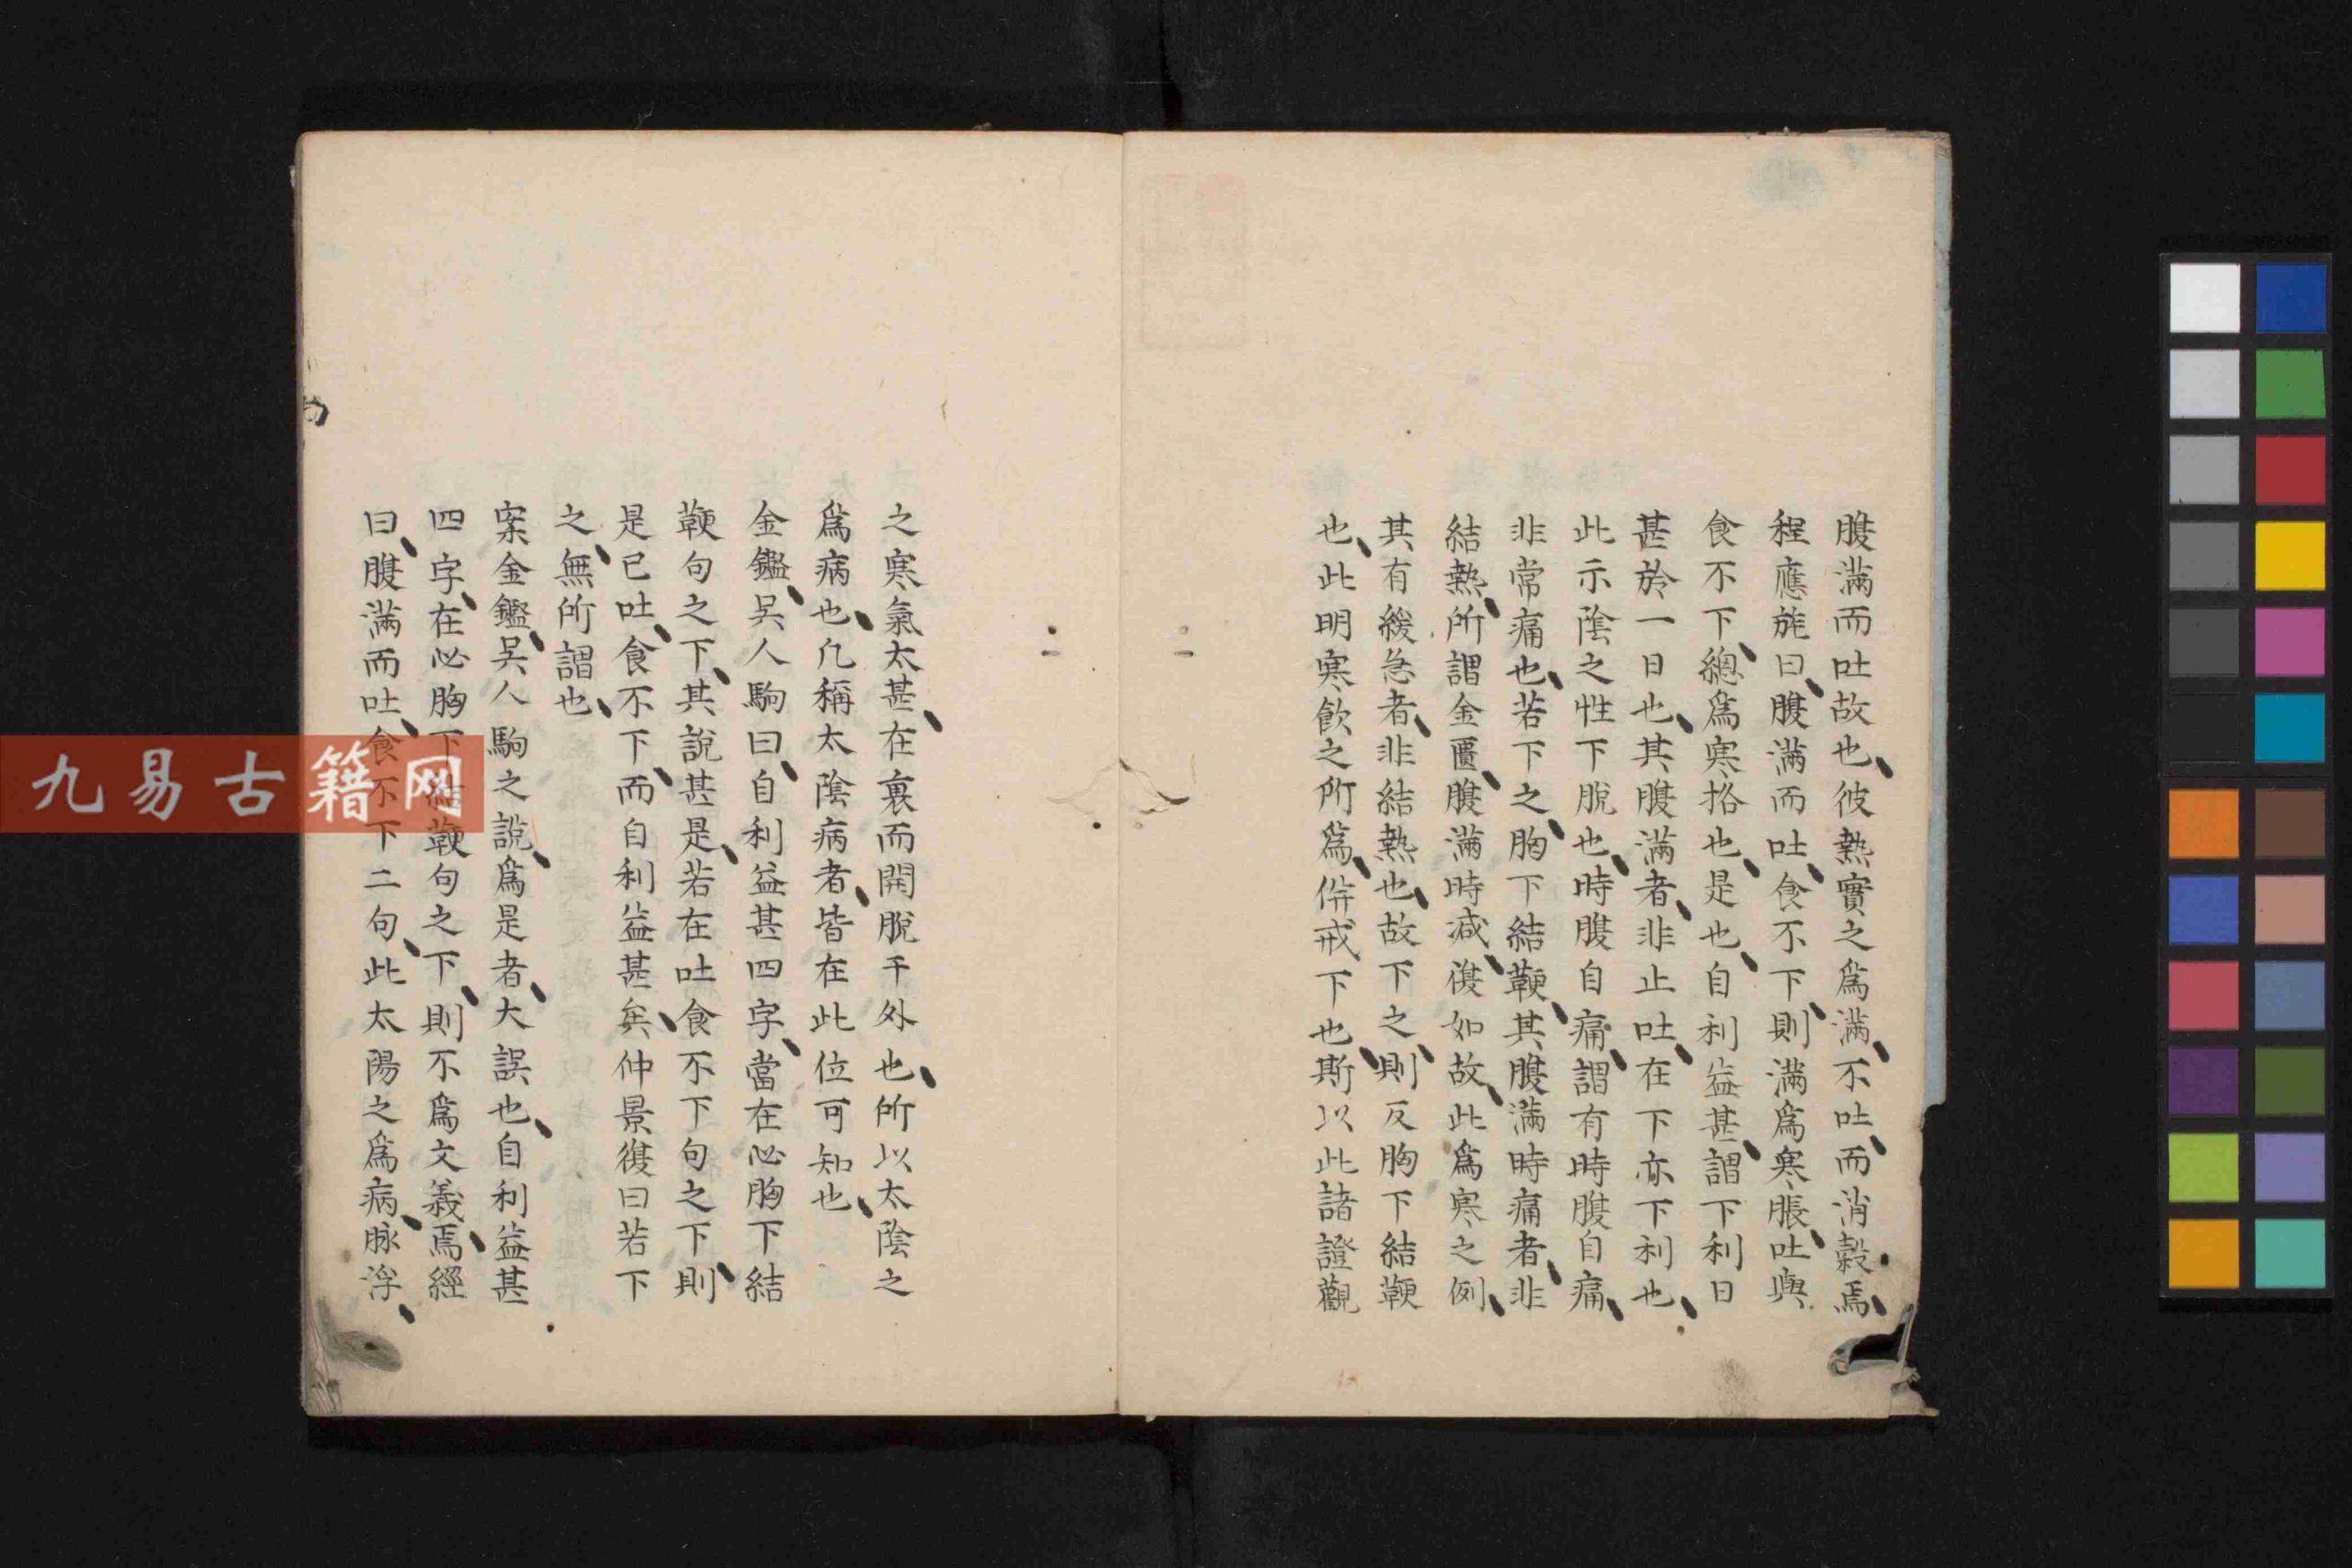 腹滿而吐故也、彼熱實之爲滿、不吐、而消穀焉、
程應旄曰、腹滿而吐、食不下、則滿爲寒脹、吐與
食不下、總爲寒挌也、是也、自利益甚、謂下利日
甚於一日也、其腹滿者、非止吐、在下亦下利也、
此示陰之性下脫也、時腹自痛、謂有時腹自痛、
非常痛也、若下之、胸下結鞕、其腹滿時痛者、非
結熱、所謂金匱、腹滿時减、復如故、此爲寒之例、
其有緩急者、非結熱也、故下之、則反胸下結鞕
也、此明寒飲之所爲、倂戒下也、斯以此諸證觀
之寒氣太甚、在裏而開脫于外也、所以太陰之
爲病也、凡稱太陰病者、皆在此位可知也、
金鑑、吳人駒曰、自利益甚四字、當在必胸下結
鞕句之下、其說甚是、若在吐食不下句之下、則
是已吐、食不下、而自利益甚矣、仲景復曰若下
之、無所謂也、
案金鑑、吳人駒之說、爲是者、大誤也、自利益甚
四字、在必胸下結鞕句之下、則不爲文義焉、經
曰、腹滿而吐、食不下二句、此太陽之爲病、脉浮、
九易古籍网